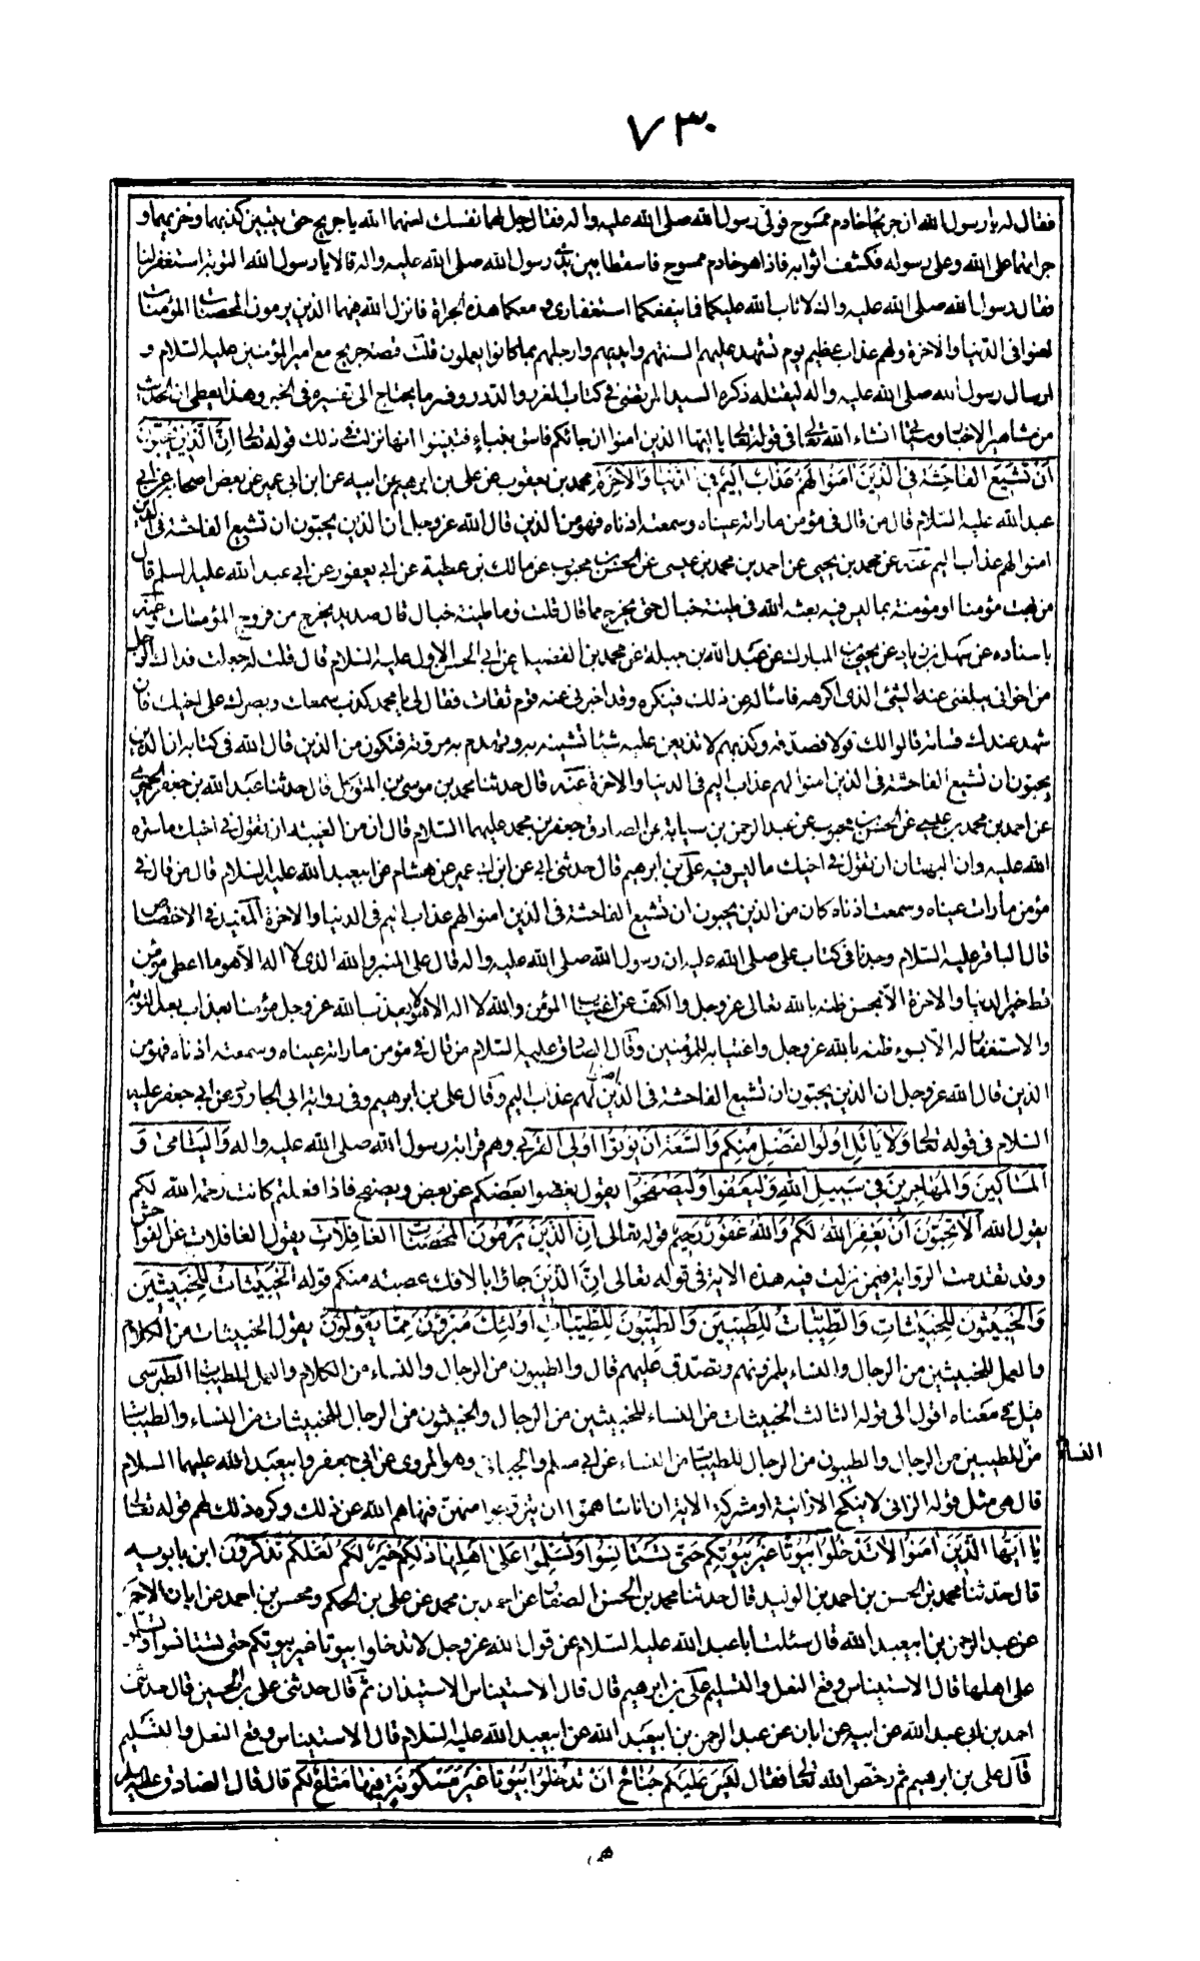 ٧٣٠
فقال له يا رسول الله ان جريحا خادم ممسوح فوثى رسول الله صلى الله عليه واله فقال حل لهما نفسك لعنهما الله يا جريح حتى يتبين كذبهما وخزيهما و
جراتهما على الله وعلى رسوله فكشف اثوابه فاذا هو خادم ممسوح فاسقطا بين يدى رسول الله صلى الله عليه واله قالا يا رسول الله التوبة استغفر لنا
فقال رسول الله صلى الله عليه واله لا تاب الله عليكما فما ينفعكما استغفارى ومعكما هذه الجراة فانزل الله فيهما الذين يرمون المحصنات المؤمنات
لعنوا فى الدنيا والاخرة ولهم عذاب عظيم يوم تشهد عليهم السنتهم وايديهم وارجلهم بما كانوا يعملون قلت قصة جريح مع امير المؤمنين عليه السلام و
ارسال رسول الله صلى الله عليه واله ليقتله ذكره السيد المرتضى فى كتاب الغرر والدرر وفسر ما يحتاج الى تفسيره فى الخبر وهذا يعطى ان الحديث
من مشاهير الاخبار وسياتى انشاء الله تعالى فى قوله تعالى يا ايها الذين امنوا ان جائكم فاسق بنباء فتبينوا انها نزلت فى ذلك قوله تعالى اِنَّ الَّذينَ يُحِبُّونَ
اَنْ تَشيعَ الفاحِشَةُ فى الَّذينَ آمَنوُا لَهُمْ عَذابٌ اَليمٌ فى الدُّنْيا وَالآخِرَةِ محمد بن يعقوب عن على بن ابرهيم عن ابيه عن ابن ابى عمير عن بعض اصحابه عن ابى
عبد الله عليه السلام قال من قال فى مؤمن ما راته عيناه وسمعته اذناه فهو من الذين قال الله عز وجل ان الذين يحبون ان تشيع الفاحشة فى الذين
امنوا لهم عذاب اليم عنه عن محمد بن يحيى عن احمد بن محمد بن عيسى عن الحسن بن محبوب عن مالك بن عطية عن ابى يعفور عن ابى عبد الله عليه السلم قال
من بهت مؤمنا او مؤمنة بما ليس فيه بعثه الله فى طينة خبال حتى يخرج مما قال قلت وما طينة خبال قال صديد يخرج من فروج المؤمسات عنه
باسناده عن سهل بن زياد عن يحيى بن المبارك عن عبد الله بن جبلة عن محمد بن الفضيل عن ابى الحسن الاول عليه السلام قال قلت له جعلت فداك الرجل
من اخوانى يبلغنى عنه الشئ الذى اكرهه فاساله عن ذلك فينكره وقد اخبرنى عنه قوم ثقات فقال لى يا محمد كذب سمعك وبصرك على اخيك فان
شهد عندك قسامة قالوا لك قولا فصدقه وكذبهم لا تذيعن عليه شيئا تشينه به وتهدم به مروته فتكون من الذين قال الله فى كتابه ان الذين
يحبون ان تشيع الفاحشة فى الذين امنوا لهم عذاب اليم فى الدنيا والاخرة عنه قال حدثنا محمد بن موسى بن المتوكل قال حدثنا عبد الله بن جعفر الحميرى
عن احمد بن محمد بن عيسى عن الحسن بن محبوب عن عبد الرحمن بن سيابة عن الصادق جعفر بن محمد عليهما السلام قال ان من الغيبة ان تقول فى اخيك ما ستره
الله عليه وان البهتان ان تقول فى اخيك ما ليس فيه على بن ابرهيم قال حدثنى ابى عن ابن ابى عمير عن هشام عن ابيعبد الله عليه السلام قال من قال فى
مؤمن ما رات عيناه وسمعت اذناه كان من الذين يحبون ان تشيع الفاحشة فى الذين امنوا لهم عذاب اليم فى الدنيا والاخرة المفيد فى الاختصاص
قال الباقر عليه السلام وجدنا فى كتاب على صلى الله عليه ان رسول الله صلى الله عليه واله قال على المنبر والله الذى لا اله الا هو ما اعطى مؤمن
قط خير الدنيا والاخرة الا بحسن ظنه بالله تعالى عز وجل والكف عن اغتياب المؤمن والله لا اله الا هو لا يعذب الله عز وجل مؤمنا بعذاب بعد التوبة
والاستغفار له الا بسوء ظنه بالله عز وجل واغتيابه للمؤمنين وقال الصادق عليه السلام من قال فى مؤمن ما راته عيناه وسمعته اذناه فهو من
الذين قال الله عز وجل ان الذين يحبون ان تشيع الفاحشة فى الذين امنوا لهم عذاب اليم وقال على بن ابرهيم وفى رواية ابى الجارود عن ابى جعفر عليه
السلام فى قوله تعالى وَلا يَاْتَلِ اوُلوُا الفَضْلِ مِنْكُمْ وَالسَّعَةِ اَنْ يُؤْتوُا اوُلِى القُرْبى وهم قرابة رسول الله صلى الله عليه واله وَاليَتامى وَ
المَساكينَ وَالمُهاجِرينَ فى سَبيلِ اللهِ وَليَعْفوُا وَليَصْفَحوُا يقول يعفوا بعضكم عن بعض ويصفح فاذا فعلتم كانت رحمة الله لكم
يقول الله اَلا تُحِبّوُنَ اَنْ يَغْفِرَ اللهُ لَكُمْ وَاللهُ غَفوُرٌ رَحيمٌ قوله تعالى اِنَّ الَّذينَ يَرْموُنَ المُحْصَناتِ الغافِلاتِ يقول الغافلات عن الفواحش
وقد تقدمت الرواية فيمن نزلت فيه هذه الاية فى قوله تعالى اِنَّ الَّذينَ جاؤا بالافك عصبة منكم قوله الخَبيثاتُ لِلخَبيثينَ
وَالخَبيثوُنَ لِلخَبيثاتِ وَالطَّيِّباتُ لِلطَّيِّبينَ وَالطَّيِّبوُنَ لِلطَّيِّباتِ اوُلئِكَ مُبَرَّؤُنَ مِمّا يَقوُلوُنَ يقول الخبيثات من الكلام
والعمل للخبيثين من الرجال والنساء يلزمونهم وتصدق عليهم قال والطيبون من الرجال والنساء من الكلام والعمل للطيبات الطبرسى
قيل فى معناه اقوال الى قوله الثالث الخبيثات من النساء للخبيثين من الرجال والخبيثون من الرجال للخبيثات من النساء والطيبات
من للطيبين من الرجال والطيبون من الرجال للطيبات من النساء عن ابى مسلم والجبائى وهو المروى عن ابى جعفر وابيعبد الله عليهما السلام
النساء
قال هى مثل قوله الزانى لا ينكح الا زانية او مشركة الاية ان اناسا هموا ان يتزوجوا منهن فنهاهم الله عن ذلك وكره ذلك لهم قوله تعالى
يا اَيُّهَا الَّذينَ امَنوُا لا تَدْخُلوُا بُيوُتًا غَيْرَ بُيوُتِكُمْ حَتّى تَسْتَانِسوُا وَتُسَلِّموُا عَلى اَهْلِها ذلِكُمْ خَيْرٌ لَكُمْ لَعَلَّكُمْ تَذَكَّروُنَ ابن بابويه
قال حدثنا محمد بن الحسن بن احمد بن الوليد قال حدثنا محمد بن الحسن الصفار عن احمد بن محمد عن على بن الحكم ومحسن بن احمد عن ابان الاحمر
عن عبد الرحمن بن ابيعبد الله قال سئلت ابا عبد الله عليه السلام عن قول الله عز وجل لا تدخلوا بيوتا غير بيوتكم حتى تستانسوا وتسلموا
على اهلها قال الاستيناس وقع النعل والتسليم على بن ابرهيم قال قال الاستيناس الاستيذان ثم قال حدثنى على بن الحسين قال حدثنى
احمد بن ابى عبد الله عن ابيه عن ابان عن عبد الرحمن بن ابيعبد الله عن ابيعبد الله عليه السلام قال الاستيناس وقع النعل والتسليم
قال على بن ابرهيم ثم رخص الله تعالى فقال لَيْسَ عَلَيْكُمْ جُناحٌ اَنْ تَدْخُلوُا بُيوُتًا غَيْرَ مَسْكوُنَةٍ فيها مَتاعٌ لَكُمْ قال قال الصادق عليه السلم